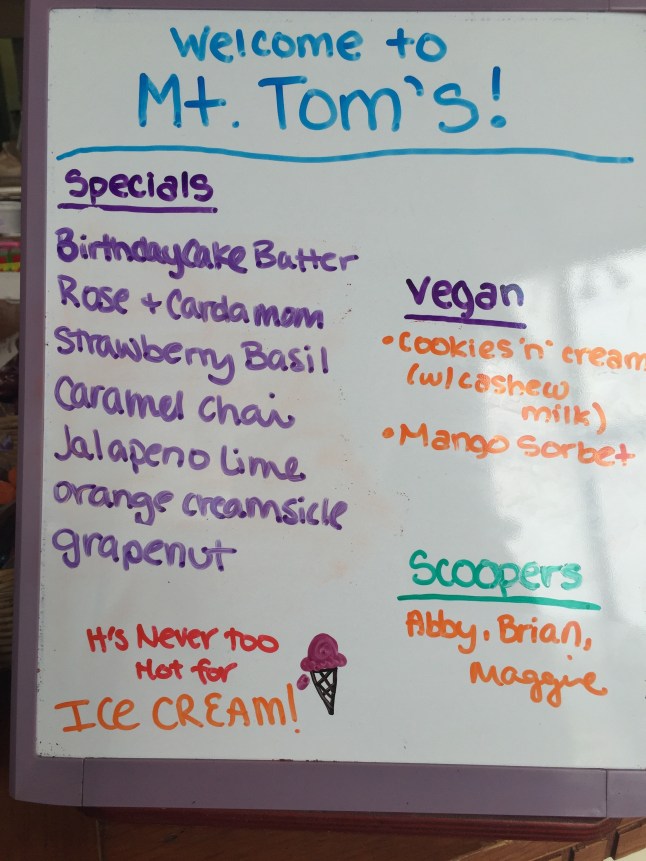 Welcome to
Mt. Tom's!
Specials
Birthday Cake Batter
Rose + Cardamom
Strawberry Basil
Caramel Chai
Jalapeno Lime
orange creamsicle
grapenut
Vegan
• Cookies 'n' cream
(w/ cashew
milk)
• Mango Sorbet
Scoopers
Abby, Brian,
Maggie
It's Never too
Hot for
ICE CREAM!